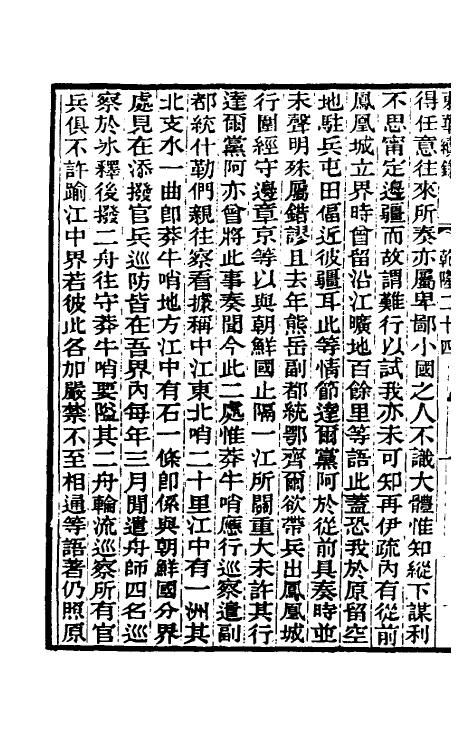 乾隆二十四
得任意往來所奏亦屬卑鄙小國之人不識大體惟知縱下謀利
不思甯定邊疆而故謂難行以試我亦未可知再伊疏內有從前
鳳凰城立界時曾留沿江曠地百餘里等語此蓋恐我於原留空
地駐兵屯田偪近彼疆耳此等情節達爾黨阿於從前具奏時並
未聲明殊屬錯謬且去年熊岳副都統鄂齊爾欲帶兵出鳳凰城
行圍經守邊章京等以與朝鮮國止隔一江所關重大未許其行
達爾黨阿亦曾將此事奏聞今此二處惟莽牛哨應行巡察遣副
都統什勒們親往察看據稱中江東北哨二十里江中有一洲其
北支水一曲卽莽牛哨地方江中有石一條卽係與朝鮮國分界
處見在添撥官兵巡防皆在吾界內每年三月閒遣舟師四名巡
察於冰釋後撥二舟往守莽牛哨要隘其二舟輪流巡察所有官
兵俱不許踰江中界若彼此各加嚴禁不至相通等語著仍照原